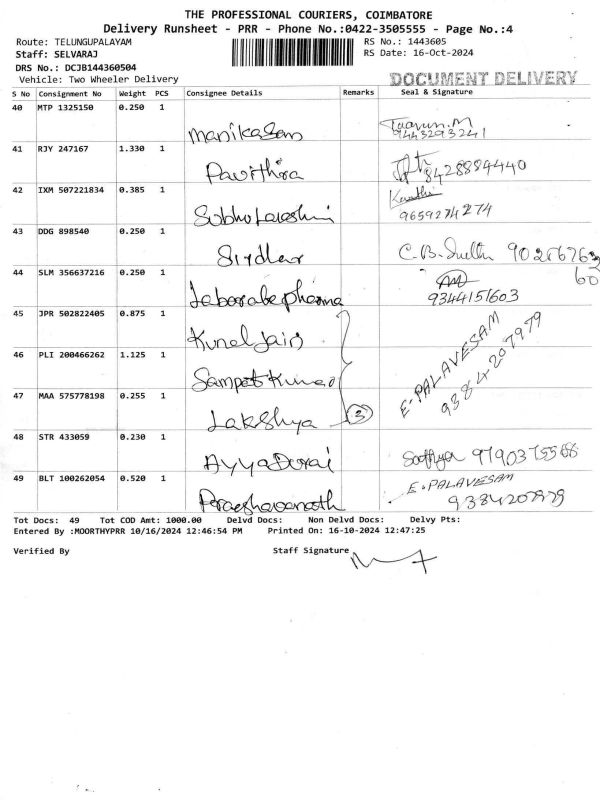 THE PROFESSIONAL COURIERS, COIMBATORE
Delivery Runsheet - PRR - Phone No.:0422-3505555 - Page No.:4
Route: TELUNGUPALAYAM RS No.: 1443605
Staff: SELVARAJ RS Date: 16-Oct-2024
DRS No.: DCJB144360504
Vehicle: Two Wheeler Delivery DOCUMENT DELIVERY
S No Consignment No Weight PCS Consignee Details Remarks Seal & Signature
40 MTP 1325150 0.250 1
Manikasan 9443293241
41 RJY 247167 1.330 1
Pavithira 8428884440
42 IXM 507221834 0.385 1
9659274274
43 DDG 898540 0.250 1
Sirdhar C.B.
44 SLM 356637216 0.250 1
9344151603
45 JPR 502822405 0.875 1
Kunal Jain
46 PLI 200466262 1.125 1
Sampat Kumar E. PALAVESAM
9384207979
47 MAA 575778198 0.255 1
Lakshya 3
48 STR 433059 0.230 1
Ayya Durai
49 BLT 100262054 0.520 1
E. PALAVESAM
9384207979
Tot Docs: 49 Tot COD Amt: 1000.00 Delvd Docs: Non Delvd Docs: Delvy Pts:
Entered By :MOORTHYPRR 10/16/2024 12:46:54 PM Printed On: 16-10-2024 12:47:25
Verified By Staff Signature